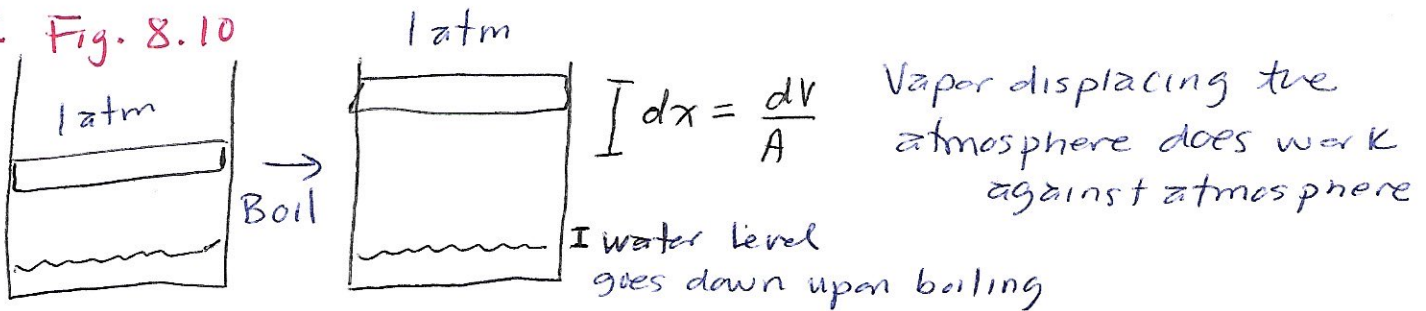 Fig. 8.10
1 atm
1 atm
→
Boil
I dx = dV/A
Vapor displacing the
atmosphere does work
against atmosphere
I water level
goes down upon boiling